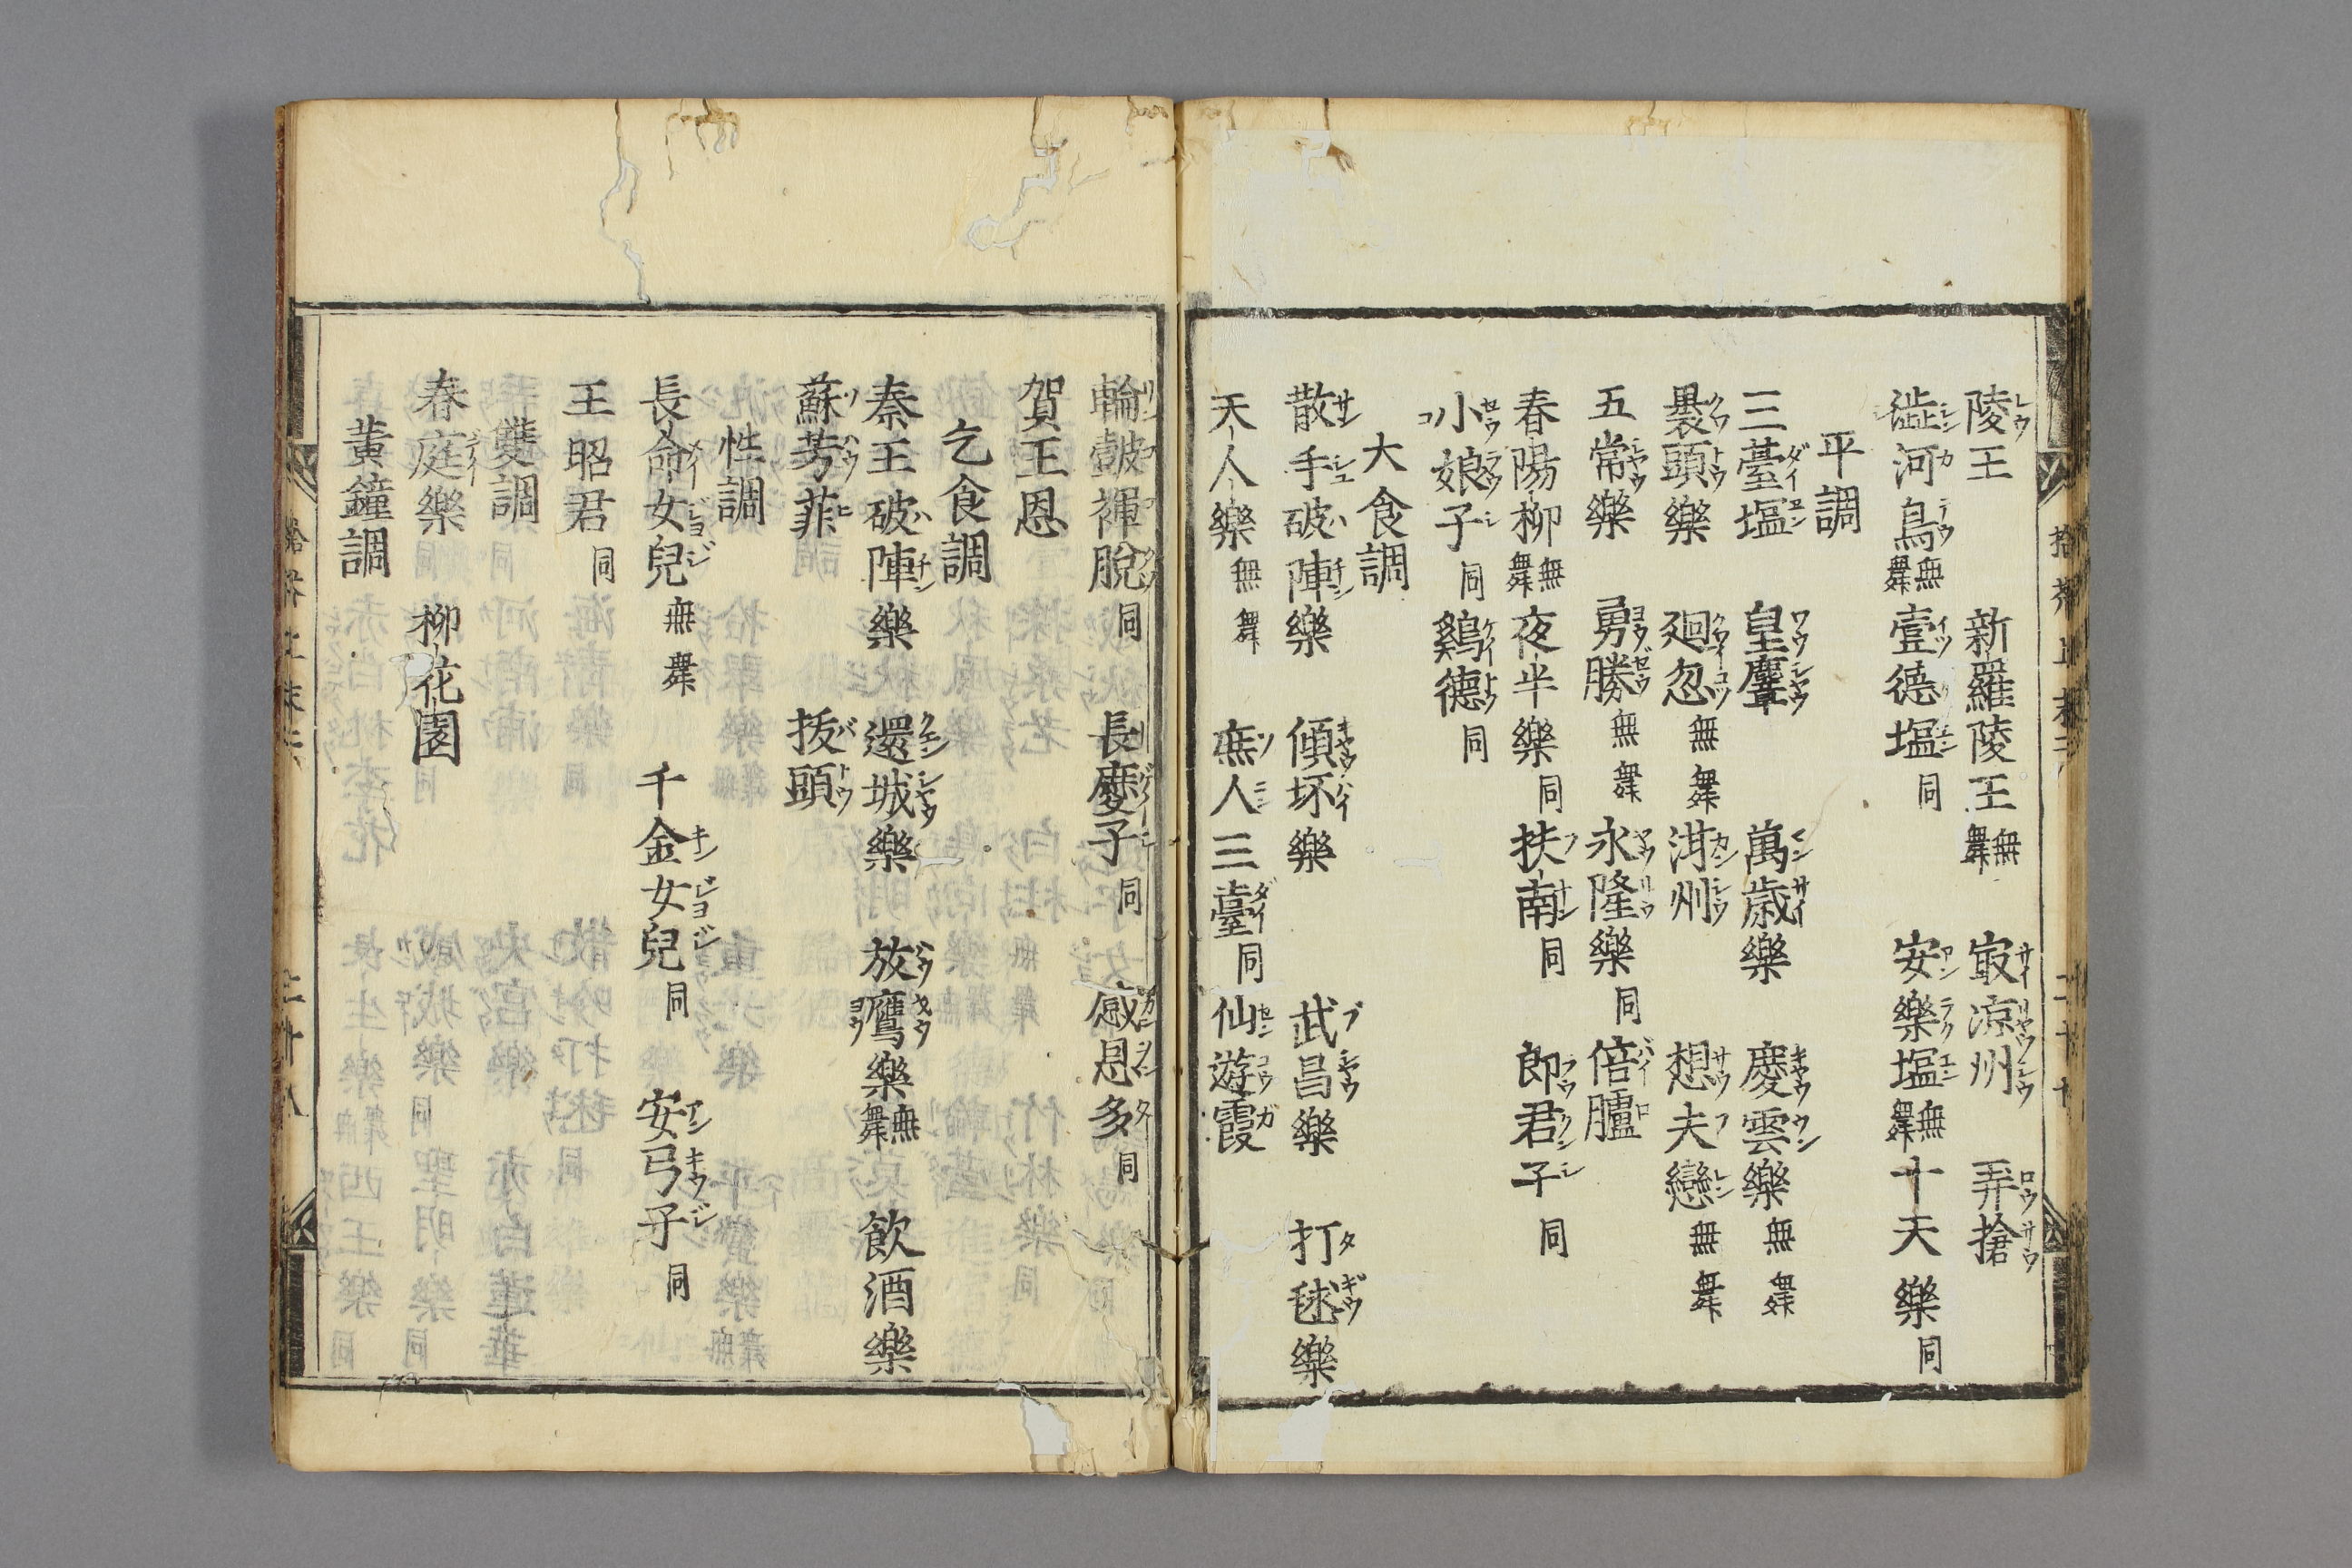 陵王　新羅陵王無舞　㝡涼州　弄搶
澁河鳥無舞　壹德塩同　安樂塩無舞　十天樂同
平調
三臺塩　皇麞　萬歳樂　慶雲樂無舞
褁頭樂　廻忽無舞　泔州　想夫戀無舞
五常樂　勇勝無舞　永隆樂同　倍臚
春陽柳無舞　夜半樂同　扶南同　郎君子同
小娘子同　鷄德同
大食調
散手破陣樂　傾坏樂　武昌樂　打毬樂
天人樂無舞　庶人三臺同　仙遊霞
輪鼓褌脫同　長慶子同　感恩多同
賀王恩
乞食調
秦王破陣樂　還城樂　放鷹樂無舞　飲酒樂
蘇芳菲　拔頭
性調
長命女兒無舞　千金女兒同　安弓子同
王昭君同
雙調
春庭樂　柳花園
黄鐘調